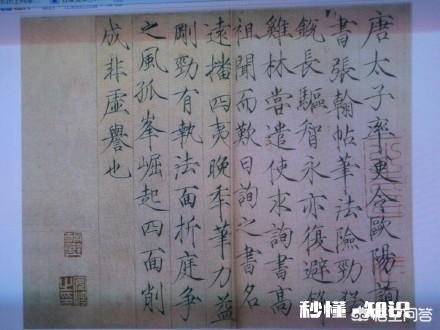 唐太子率更令歐陽詢
書張翰帖筆法險勁猛
銳長驅智永亦復避鋒
雞林嘗遣使求詢書高
祖聞而歎曰詢之書名
遠播四夷晚年筆力益
剛勁有執法面折庭爭
之風孤峯崛起四面削
成非虛譽也
秒懂·知识
悟空问答